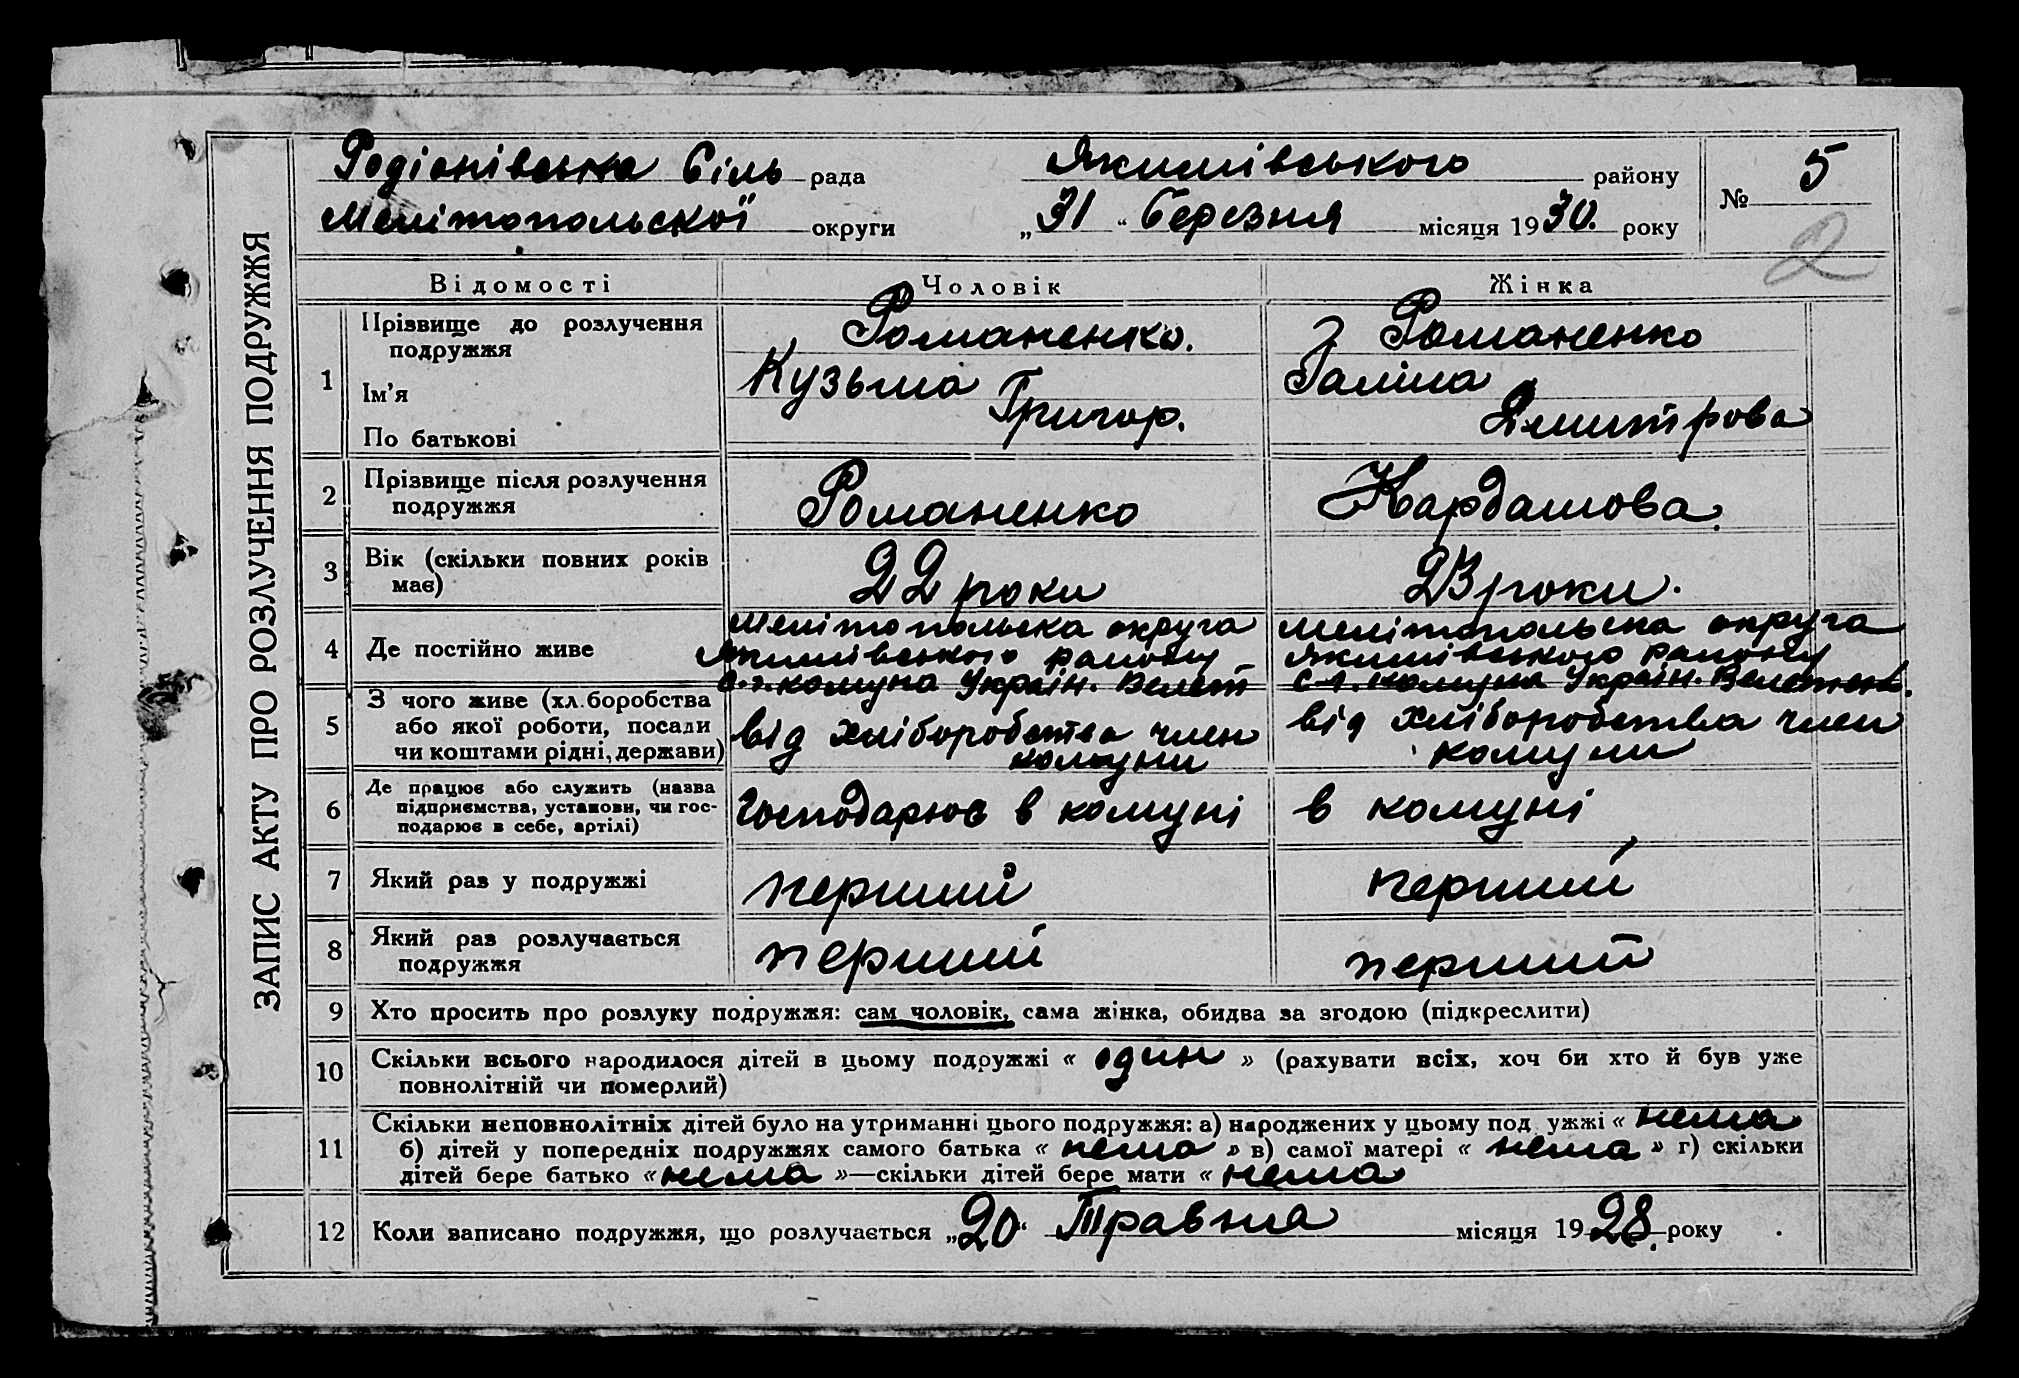 ЗАПИС АКТУ ПРО РОЗЛУЧЕННЯ ПОДРУЖЖЯ
Родіонівська Сіль рада Якимівського району № 5
Мелітопольскої округи „31“ Березня місяця 1930. року
2
Відомості Чоловік Жінка
1 Прізвище до розлучення подружжя Романенко. Романенко
Ім'я Кузьма Галіна
По батькові Григор. Дмитрова
2 Прізвище після розлучення подружжя Романенко Кардашова.
3 Вік (скільки повних років має) 22 роки 23 роки.
4 Де постійно живе Мелітопольска округа Якимівського району комуна Україн. Велет Мелітопольска округа Якимівського району комуна Україн.
5 З чого живе (хл.боробства або якої роботи, посади чи коштами рідні, держави) від хліборобства член комуни від хліборобства член комуни
6 Де працює або служить (назва підприємства, установи, чи господарює в себе, артілі) господарює в комуні в комуні
7 Який раз у подружжі перший перший
8 Який раз розлучається подружжя перший перший
9 Хто просить про розлуку подружжя: сам чоловік, сама жінка, обидва за згодою (підкреслити)
10 Скільки всього народилося дітей в цьому подружжі « один » (рахувати всіх, хоч би хто й був уже
повнолітній чи померлий)
11 Скільки неповнолітніх дітей було на утриманні цього подружжя: а) народжених у цьому под ужжі « нема
б) дітей у попередніх подружжях самого батька « нема » в) самої матері « нема » г) скільки
дітей бере батько « нема »—скільки дітей бере мати « нема
12 Коли записано подружжя, що розлучається „20“ Травня місяця 1928. року